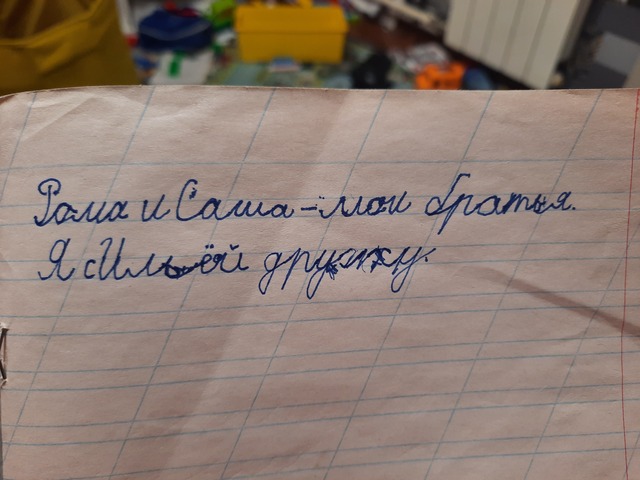 Рома и Саша - мои братья.
Я с Ильёй дружу.